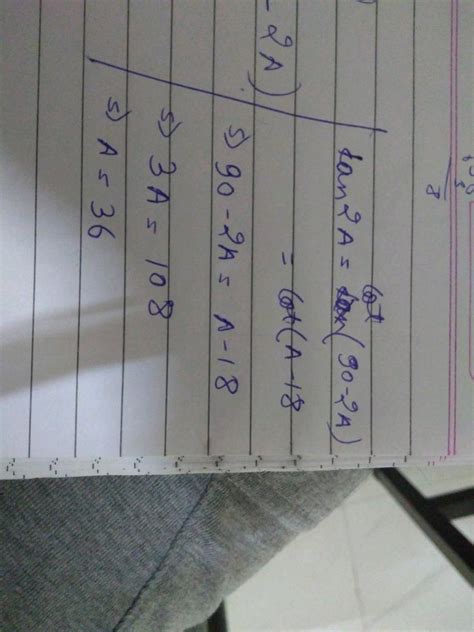 8
tan 2A = cot (90-2A)
= cot (A-18
⇒) 90-2A = A-18
⇒) 3A = 108
⇒) A = 36
- 2A)